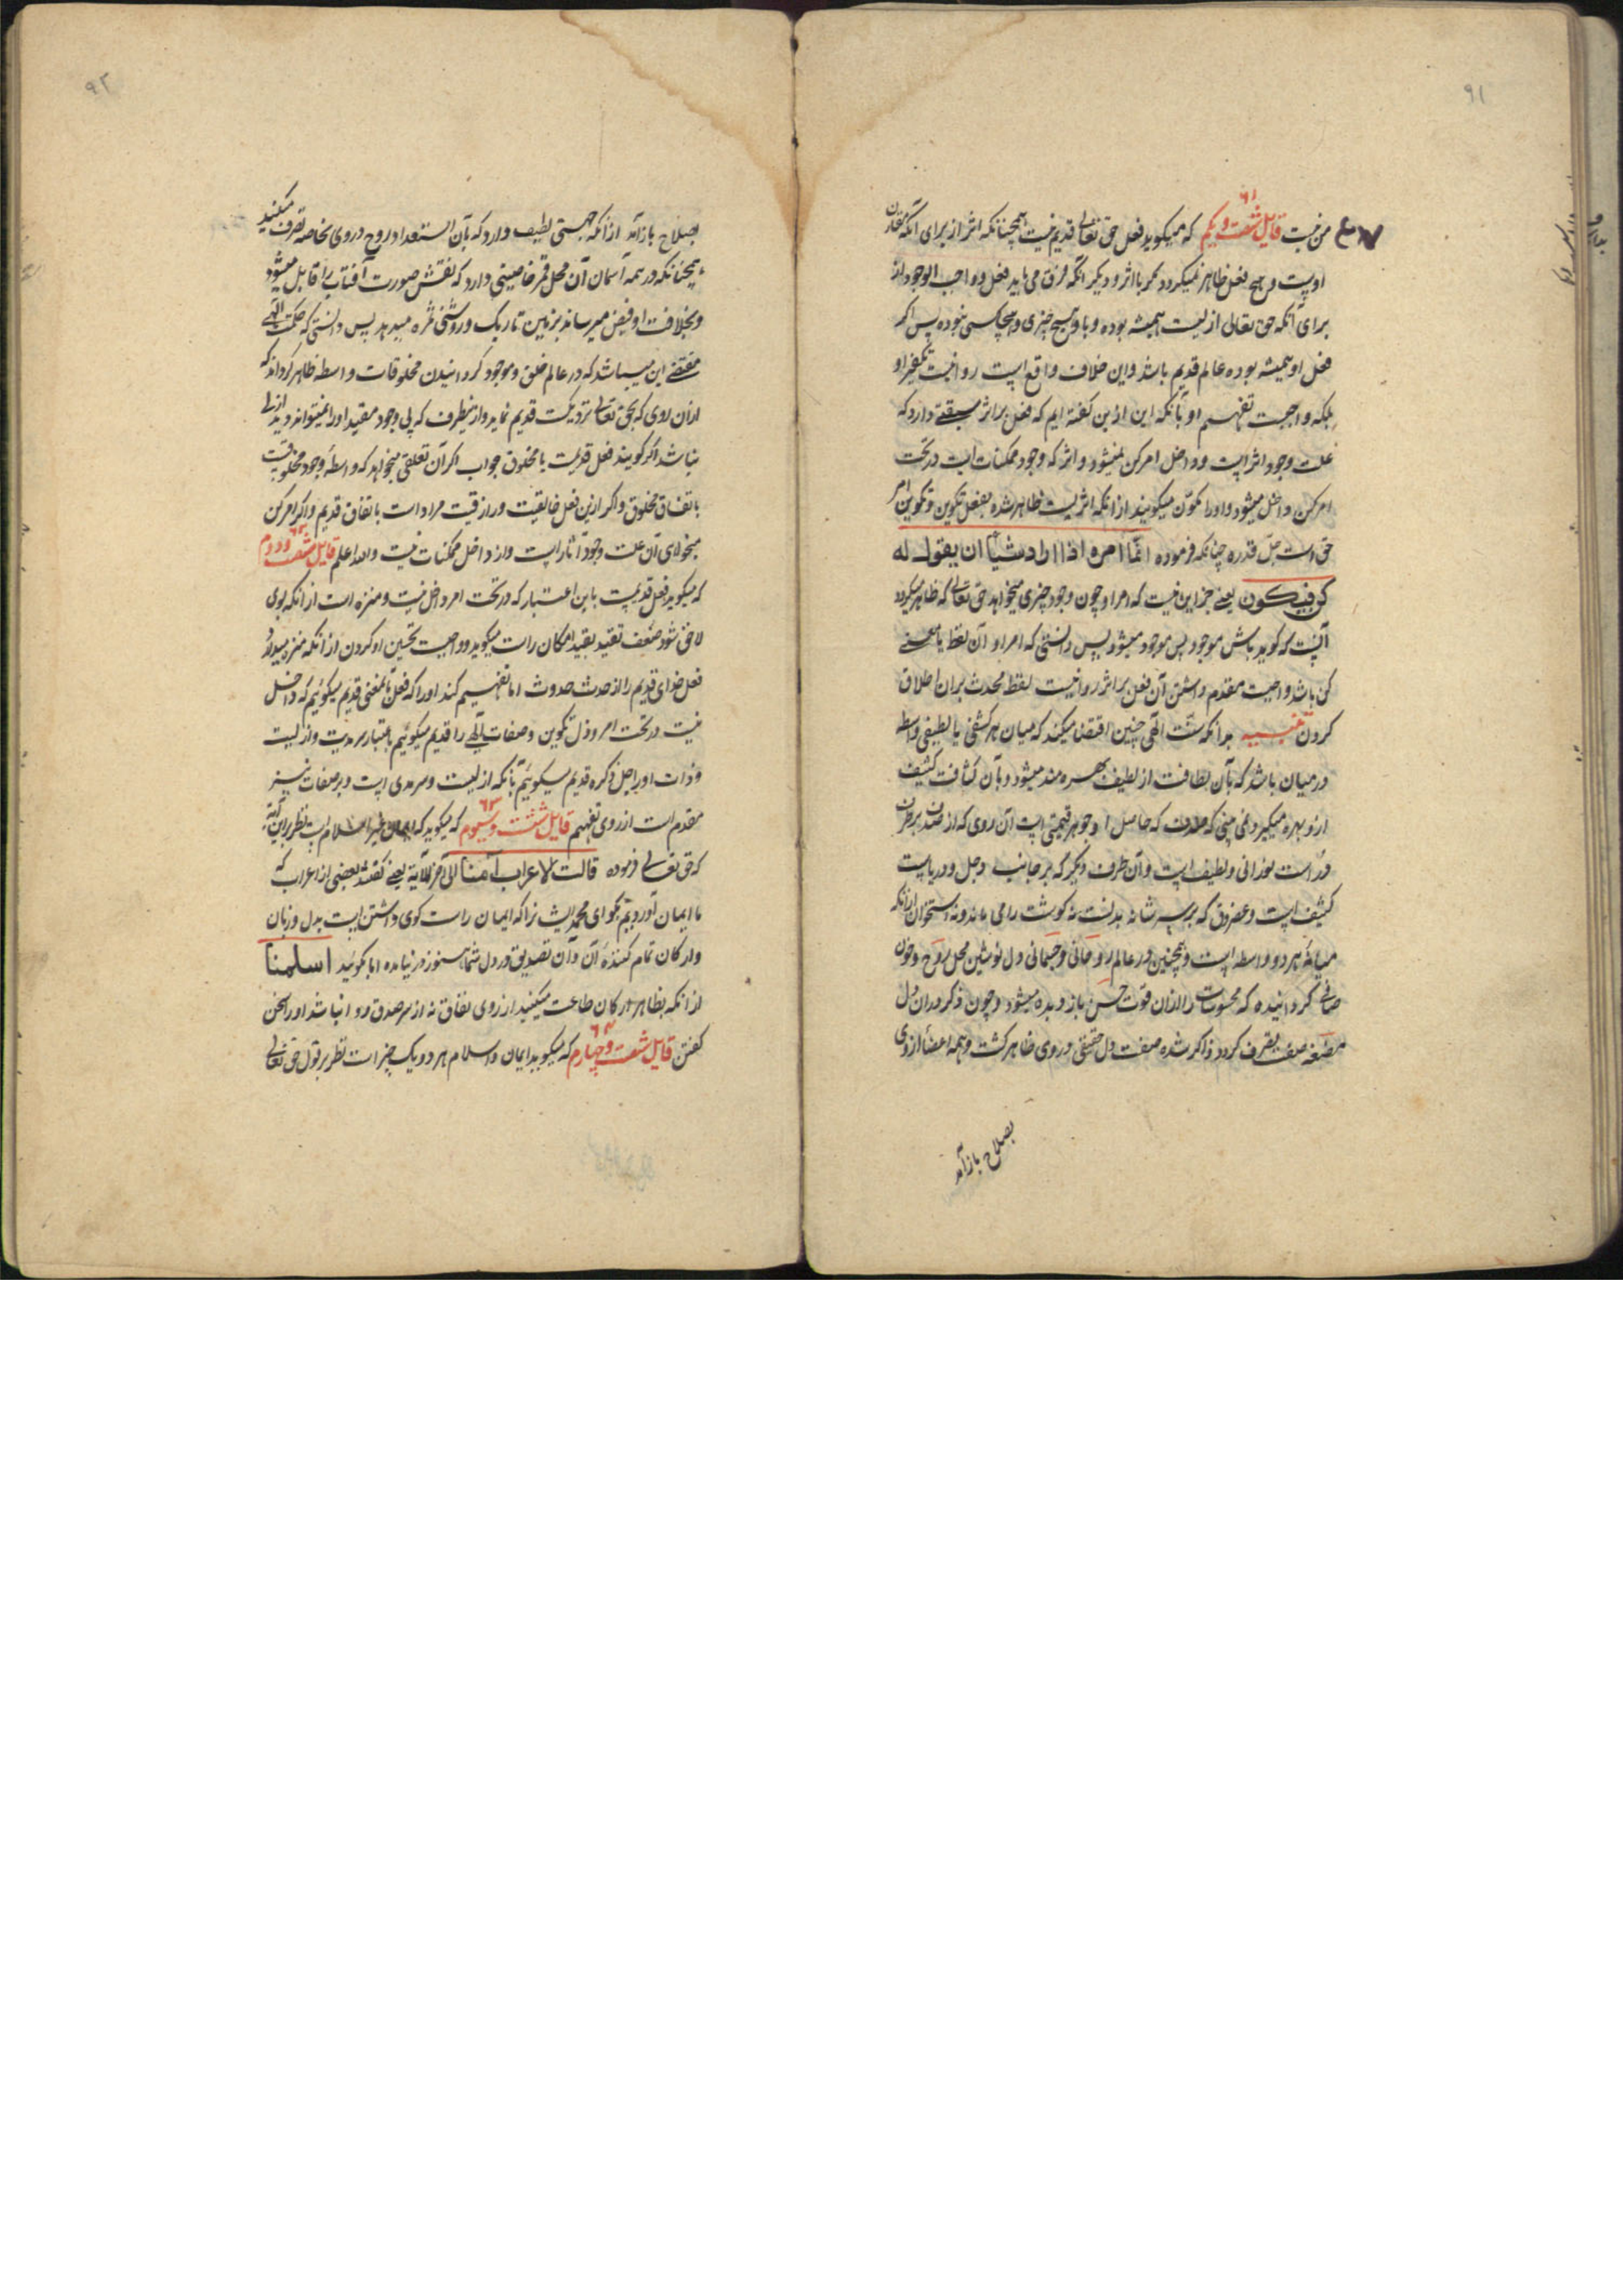 ۹۱
من نیست قایل شصت و یکم که میگوید فعل حق تعالی قدیم نیست همچنانکه اثر از برای آنکه مقارن
۶۱
اوست و هیچ فعل ظاهر نمیگردد مگر با اثر و دیگر آنکه فرق می باید فعل و واجب الوجود از
برای آنکه حق تعالی ازلیست همیشه بوده و با او هیچ چیزی و هیچکسی نبوده پس اگر
فعل او همیشه بوده عالم قدیم باشد و این خلاف واقع است روا نیست تکفیر او
بلکه واجبست تفهیم او بآنکه این از بن گفته ایم که فعل بر اثر سبقتی دارد که
علت وجود اثر است و داخل امر کن نمیشود و اثر که وجود ممکنات است در تحت
امر کن داخل میشود و او را مکوّن میگویند از آنکه اثریست ظاهر شده بفعل تکوین و تکوین امر
حق است جلّ قدره چنانکه فرموده انّما امره اذا اراد شیئا ان یقول له
کن فیکون یعنی جز این نیست که امر او چون وجود چیزی میخواهد حق تعالی که ظاهر میگردد
آنست که گوید باش موجود پس موجود میشود پس دانستی که امر او آن لفظ یا معنی
کن باشد واجبست مقدم داشتن آن فعل بر اثر روا نیست لفظ محدث بران اطلاق
کردن تنبیه بدانکه سنّت الهی چنین اقتضا میکند که میان هر کثیفی یا لطیفی واسطه
در میان باشد که بآن لطافت از لطیف بهره مند میشود و بآن کثافت کثیف
ازو بهره میگیرد نمی بینی که صدف که حاصل او جوهر قیمتی است آن روی که از صدف بر طرف
درّ است نورانی و لطیف است و آن طرف دیگر که بر جانب وحل و دریاست
کثیف است و غضروف که بر سر شانه بدنست نه گوشت را می ماند و نه استخوان از آنکه
میانه هر دو واسطه است و همچنین در عالم روحانی و جسمانی دل نوشین محل روح و خون
صافی گردانیده که محسوسات را از ان قوّت حس باز و بده میشود و چون ذکر در ان دل
مضغه صفت تصرف کرد و ذاکر شده صفت دل حقیقی در وی ظاهر گشت و همه اعضا از وی
بصلاح باز آمد
۹۲
بصلاح باز آمد از آنکه جهتی لطیف دارد که بآن استعداد روح در وی بخاصه تصرف میکند
همچنانکه در همه آسمان آن محل قمر خاصیتی دارد که نقش صورت آفتاب را قابل میشود
و بخلافت او فیض میرساند بزمین تاریک و روشنی ثمره میدهد پس دانستی که حکمت الهی
مقتضی این میباشد که در عالم خلق و موجود گردانیدن مخلوقات واسطه ظاهر گرداند که
از آن روی که بحق تعالی نزدیکست قدیم نماید و از این طرف که پی وجود مقید او را نمیتواند دید ازلی
نباشد اگر گویند فعل قدیمست یا مخلوق جواب اگر آن تعلقی میخواهد که واسطه وجود مخلوقست
باتفاق مخلوق و اگر ازین فعل خالقیت و رازقیت مراد است باتفاق قدیم و اگر امر کن
میخواهی آن علت وجود آثار است و از داخل ممکنات نیست والله اعلم قایل شصت و دوم
۶۲
که میگوید فعل قدیمست باین اعتبار که در تحت امر داخل نیست و منزه است از آنکه بوی
لاحق شود ضعف تقید بقید امکان راست میگوید و واجبست تحسین او کردن از آنکه منزه میدارد
فعل خدای قدیم را از حدث حدوث اما تفهیم کند او را که فعل بآنمعنی قدیم میگوئیم که داخل
نیست در تحت امر و ذل تکوین و صفات الهی را قدیم میگوئیم باعتبار سرمدیت و ازلیت
و ذات او را جل ذکره قدیم میگوئیم بآنکه ازلیست و سرمدی است و بر صفات نیز
مقدم است از روی تفهیم قایل شصت و سیوم که میگوید که ایمان غیر اسلام است نظر بر این آیه
۶۳
که حق تعالی فرموده قالت الاعراب آمنا الی آخر الآیة یعنی گفتند بعضی از اعراب که
ما ایمان آوردیم بگو ای محمد ایشانرا که ایمان راست گوی داشتن است بدل و زبان
و ارکان تمام کننده آن و آن تصدیق در دل شما هنوز در نیامده اما بگوئید اسلمنا
از آنکه بظاهر ارکان طاعت میکنید از روی نفاق نه از سر صدق روا نباشد او را سخن
گفتن قایل شصت و چهارم که میگوید ایمان و اسلام هر دو یک چیز است نظر بر قول حق تعالی
۶۴